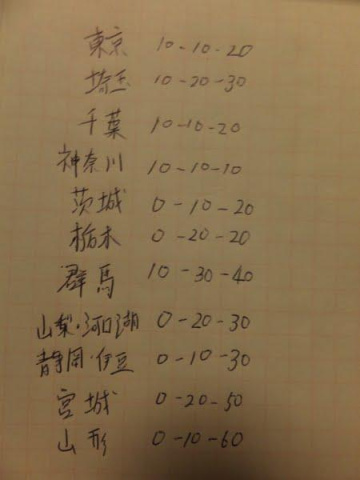 東京 10-10-20
埼玉 10-20-30
千葉 10-10-20
神奈川 10-10-10
茨城 0-10-20
栃木 0-20-20
群馬 10-30-40
山梨・河口湖 0-20-30
静岡・伊豆 0-10-30
宮城 0-20-50
山形 0-10-60